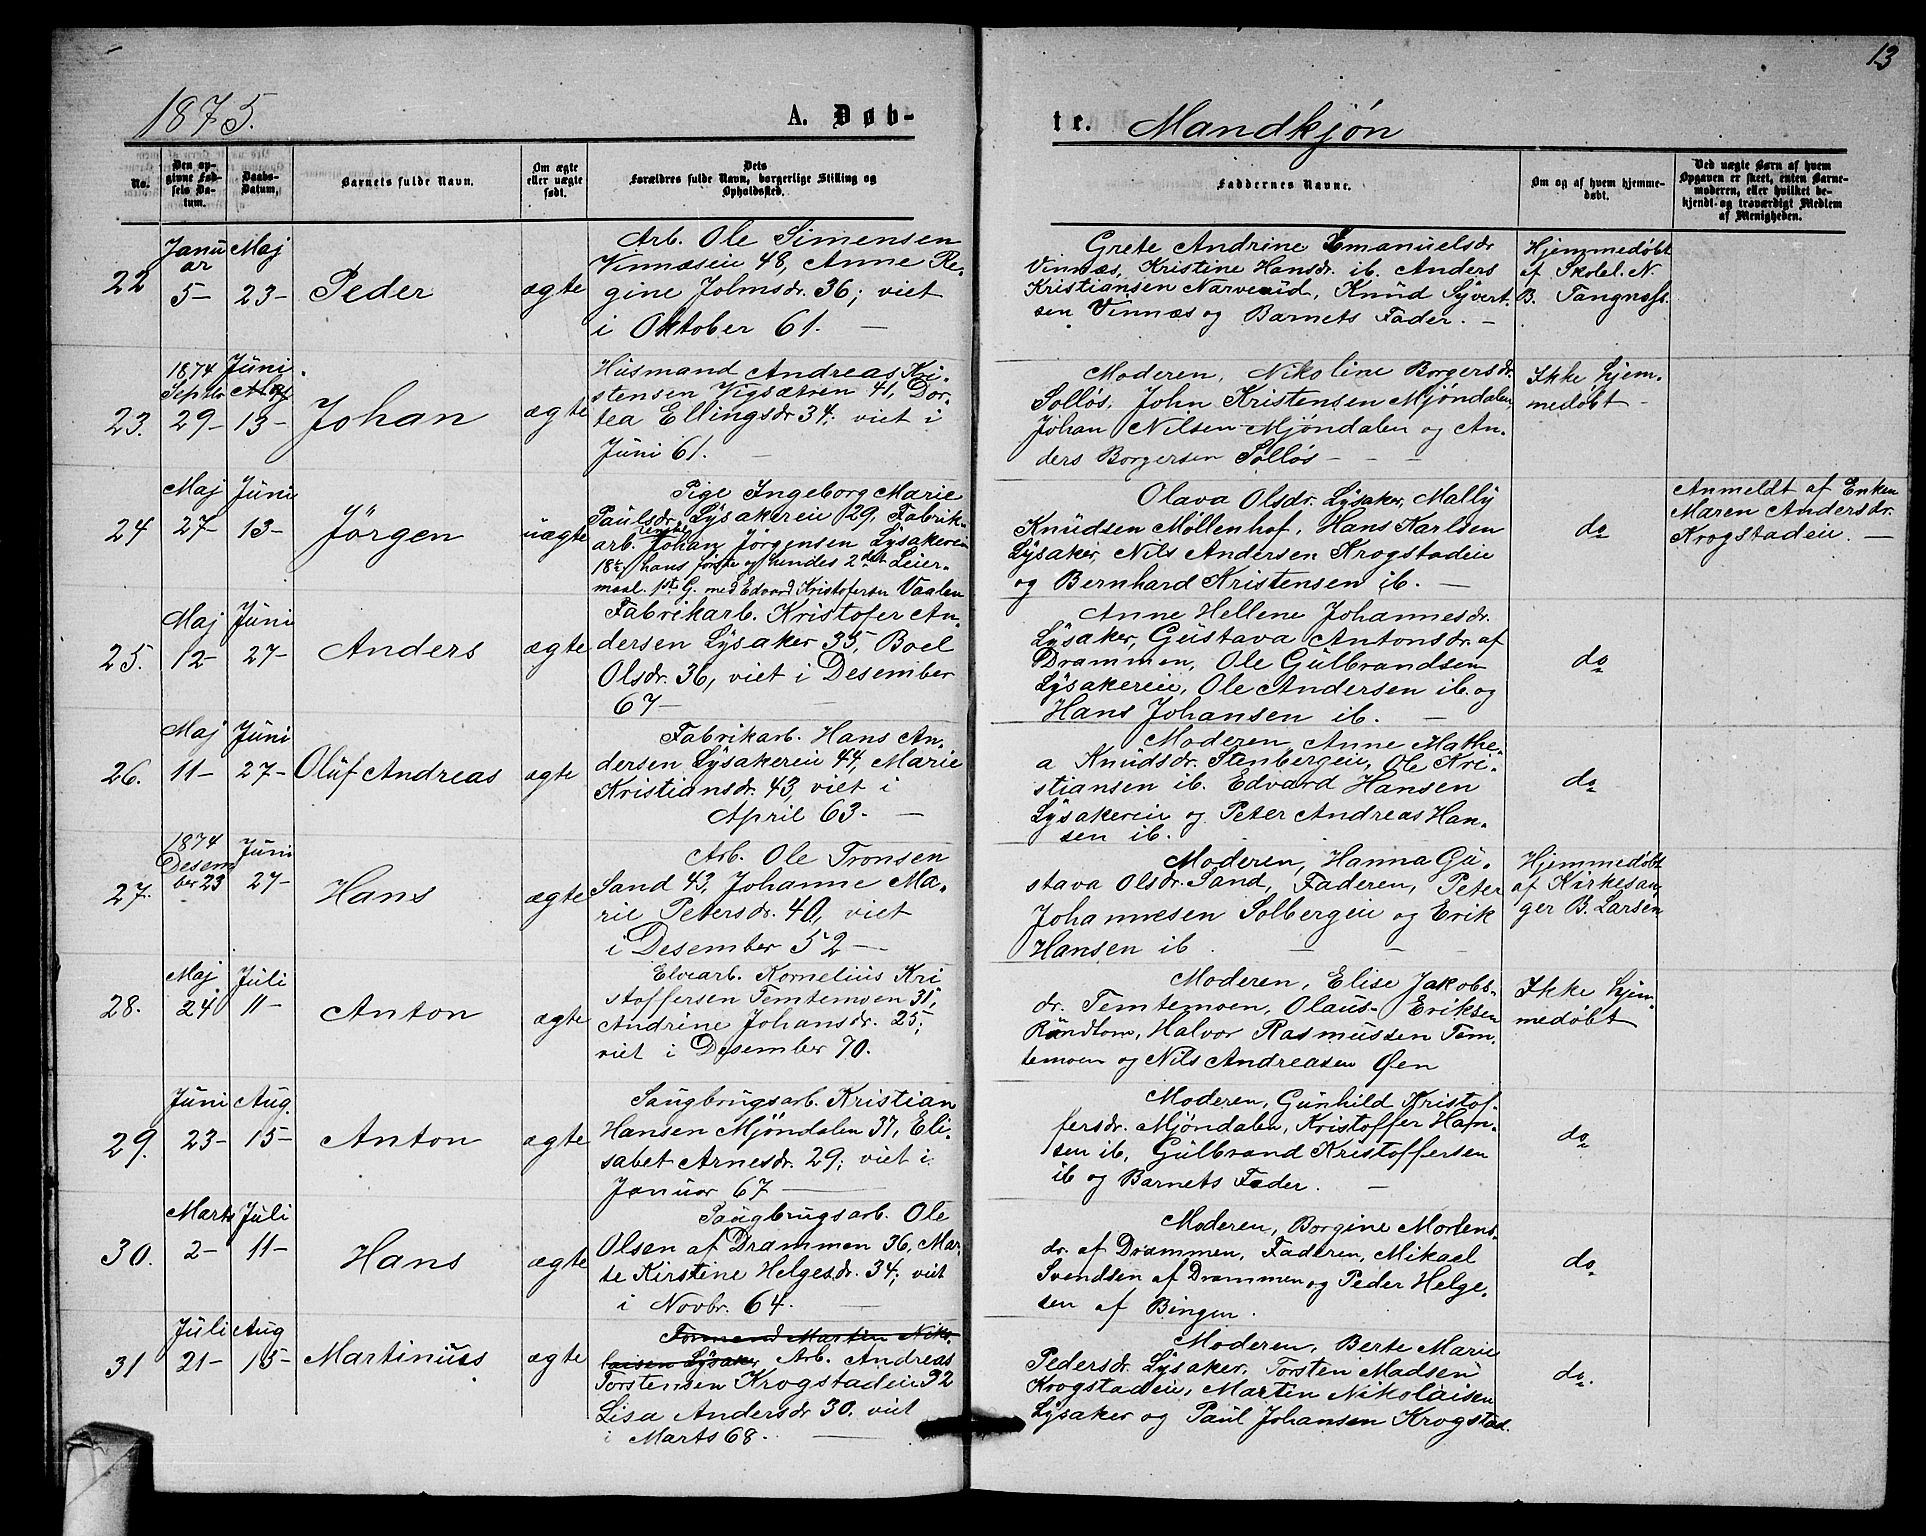 13
1875.
A. Døb-
te. Mandkjön
No.
Den op-
givne Fød-
sels Da-
tum.
Daabs-
Datum.
Barnets fulde Navn.
Om ægte
eller uægte
født.
Dets
Forældres fulde Navn, borgerlige Stilling og
Opholdsted.
Faddernes Navne.
Om og af hvem hjemme-
døbt.
Ved uægte Børn af hvem
Opgaven er skeet, enten Barne-
moderen, eller hvilket be-
kjendt og troværdigt Medlem
af Menigheden.
22
Janu
ar
5-
Maj
23-
Peder
ægte
Arb. Ole Simensen
Vinnæseie 48, Anne Re-
gine Johnsdr. 36; viet
i Oktober 61. —
Grete Andrine Emanuelsdr
Vinnæs, Kristine Hansdr. ib. Anders
Kristiansen Narverud, Knud Syvert-
sen Vinnæs og Barnets Fader. -
Hjemmedøbt
af Skolel. N.
B. Tangnæss.
23.
1874
Septbr
29-
Juni
13-
Johan
ægte
Husmand Andreas Kri-
stensen Vigsætren 41, Dor-
tea Ellingsdr. 34; viet i
Juni 61. —
Moderen, Nikoline Borgersdr.
Solløs, John Kristensen Mjöndalen,
Johan Nilsen Mjöndalen og An-
ders Borgersen Solløs - - -
Ikke hjem-
medøbt -
24
Maj
27-
Juni
13-
Jörgen
uægte
Pige Ingeborg Marie
Paulsdr. Lysakereie 29, Fabrik-
arb. Johan Jorgensen Lysakereie
hans første og hendes 2det Leier-
maal. 1ste G. med Edvard Kristofersen Vaalen
Olava Olsdr. Lysaker, Mally
Knudsen Møllenhof, Hans Karlsen
Lysaker, Nils Andersen Krogstadeie
og Bernhard Kristensen ib. —
do
Anmeldt af Enken
Maren Andersdr.
Krogstadeie. —
25.
Maj
12-
Juni
27-
Anders
ægte
Fabrikarb. Kristofer An-
dersen Lysaker 35, Boel
Olsdr. 36, viet i Desember
67-
Anne Hellene Johannesdr.
Lysaker, Gustava Antonsdr. af
Drammen, Ole Gulbrandsen
Lysakereie, Ole Andersen ib. og
Hans Johansen ib. —
do
26.
Maj
11-
Juni
27-
Oluf Andreas
ægte
Fabrikarb. Hans An-
dersen Lysakereie 44, Marie
Kristiansdr. 43, viet i
April 63. —
Moderen, Anne Mathe-
a Knudsdr. Stenbergeie, Ole Kri-
stiansen ib. Edvard Hansen
Lysakereie og Peter Andreas Han-
sen ib.
do
27.
1874
Desem
ber 23
Juni
27-
Hans
ægte
Arb. Ole Tronsen
Sand 42, Johanne Ma-
rie Petersdr. 40, viet
i Desember 52 —
Moderen, Hanna Gu-
stava Olsdr. Sand, Faderen, Peter
Johannesen Solbergeie og Erik
Hansen ib. — — —
Hjemmedøbt
af Kirkesan-
ger B. Larsen
28.
Maj
24
Juli
11-
Anton
ægte
Elvearb. Kornelius Kri
stoffersen Temtemoen 31,
Andrine Johansdr. 25;
viet i Desember 70.
Moderen, Elise Jakobs-
dr. Temtemoen, Olaus Eriksen
Rundtom, Halvor Rasmussen Tem-
temoen og Nils Andreasen Øen
Ikke hjem-
medøbt
29.
Juni
23-
Aug.
15-
Anton
ægte
Saugbrugsarb. Kristian
Hansen Mjöndalen 37, Eli-
sabet Arnesdr. 29; viet i
Januar 67 —
Moderen, Gunhild Kristof-
fersdr. Mjöndalen, Kristoffer Han-
sen ib, Gulbrand Kristoffersen
ib og Barnets Fader. -
do
30.
Marts
2-
Juli
11-
Hans
ægte
Saugbrugsarb. Ole
Olsen af Drammen 36, Mar-
te Kirstine Helgesdr. 34; viet
i Novbr. 64. —
Moderen, Borgine Mortens-
dr. af Drammen, Faderen, Mikael
Svendsen af Drammen og Peder Helge-
sen af Bingen.
do
31
Juli
21-
Aug
15-
Martinus
ægte
Formand Martin Niko-
laisen Lysaker, Arb. Andreas
Torstensen Krogstadeie 32
Lisa Andersdr 30. viet
i Marts 68. —
Moderen, Berte Marie
Pedersdr. Lysaker, Torsten Madsen
Krogstadeie, Martin Nikolaisen
Lysaker og Paul Johansen Krogstad.
do.